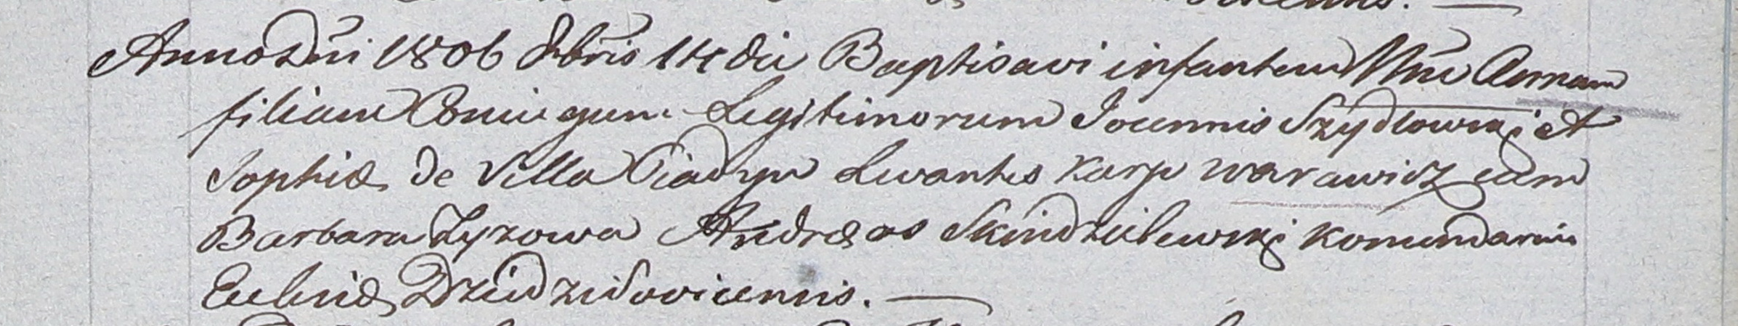 Anno Dni 1806 Xbris 14 die Baptisavi infantem Nne Annam
filiam Coniugum Legitimorum Joannis Szydlowski et
Sophiæ de Villa Levantes Karp Warawicz cum
Barbara Zyzowa Andræas Skindzielewski Komendarius
Ecclesiæ Dziedzilovicensis. —